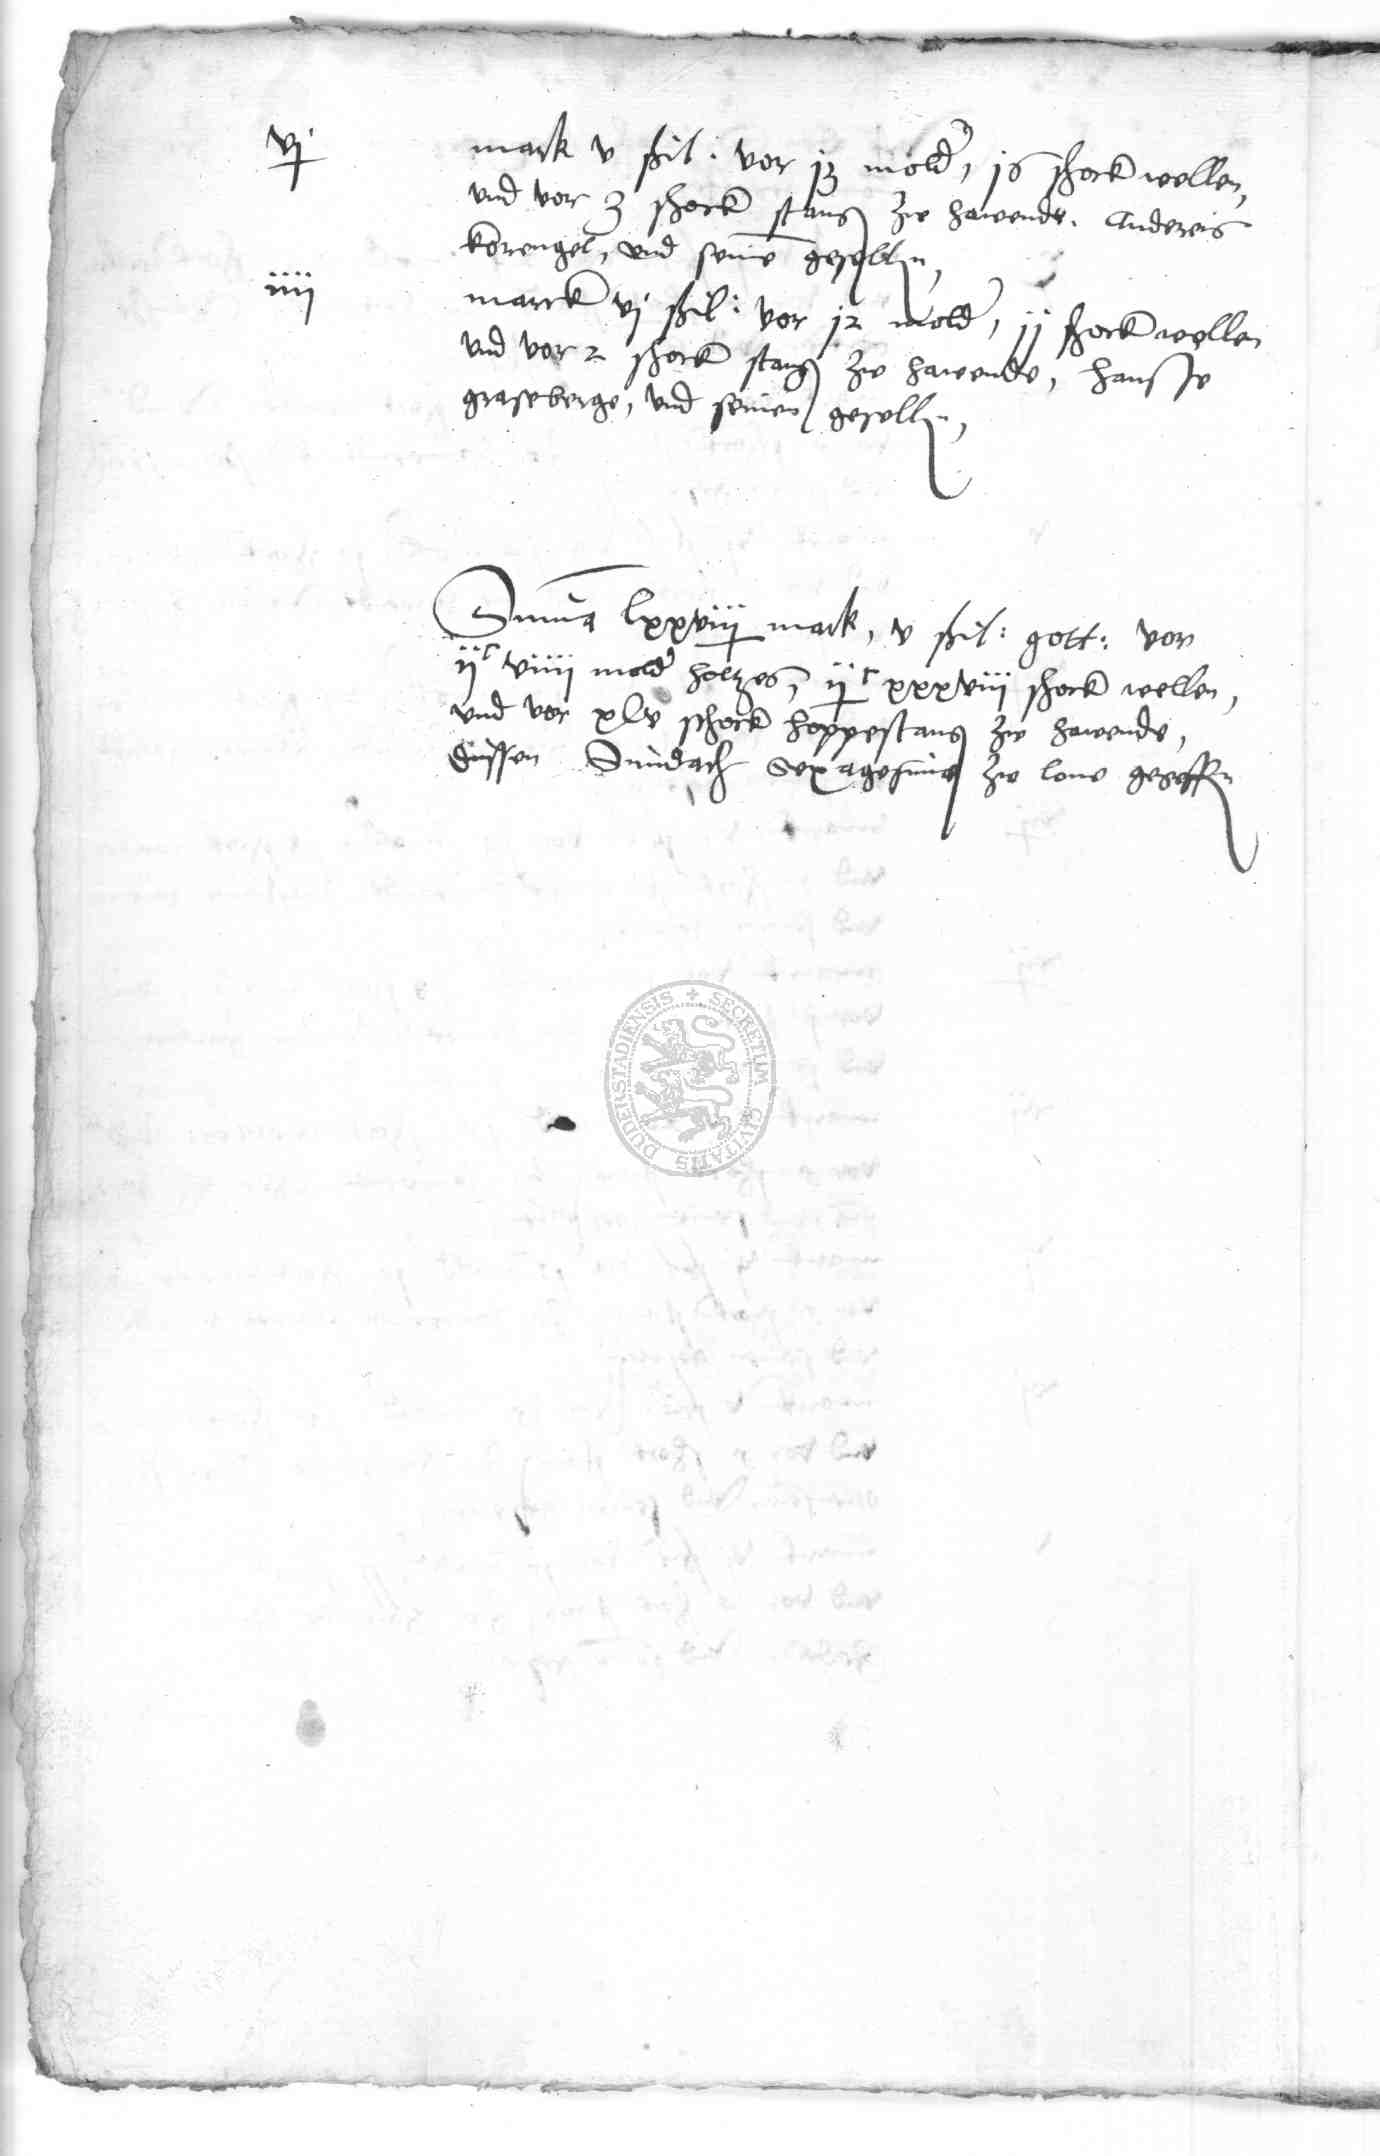 vj mark v ßil: vor 13 mold', 16 schock wellen,
und vor 3 schock stang zw hawende. Andereis
korengel, und seine geselln,
iiij marck vj ßil: vor 12 mold', 11 schock wellen
und vor 2 schock stang zw hawende, hansse
graseberge, und seinen geselln,
Suma lxxviij mark, v ßil: gott: vor
ijc viiij mold' holtzes, ijc xxxviii schock wellen,
und vor xlv schock hoppestang zw hawende,
dussen Sundach Sexagesime zw lone
SECRETUM CIVITATIS DUDERSTADIENSIS